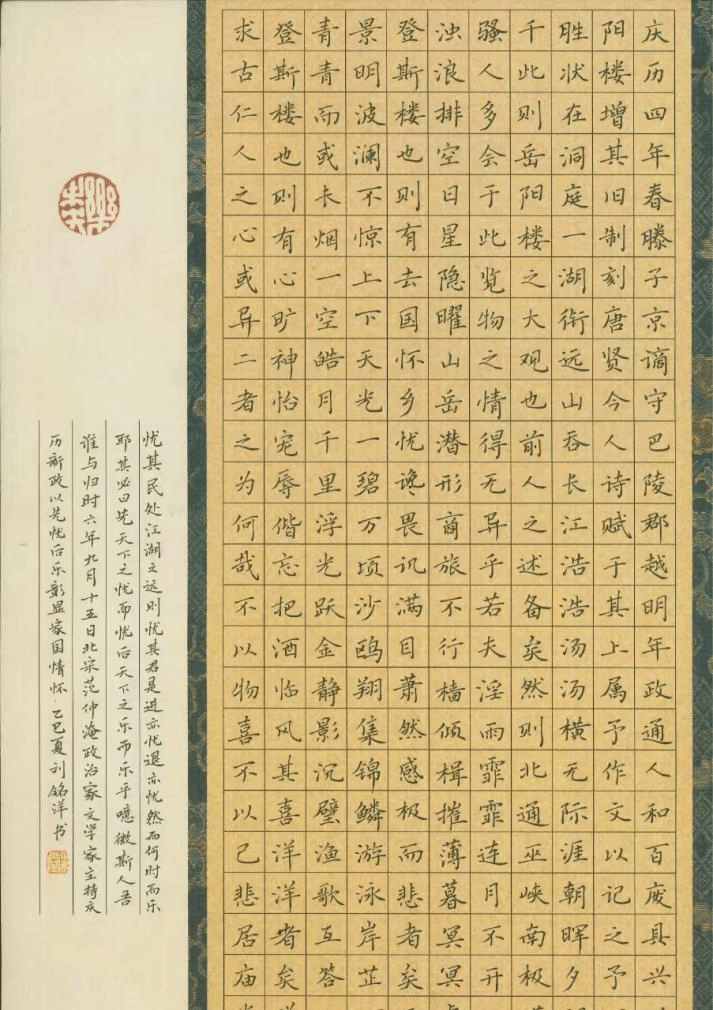 庆历四年春滕子京谪守巴陵郡越明年政通人和百废具兴
阳楼增其旧制刻唐贤今人诗赋于其上属予作文以记之予
胜状在洞庭一湖衔远山吞长江浩浩汤汤横无际涯朝晖夕
千此则岳阳楼之大观也前人之述备矣然则北通巫峡南极
骚人多会于此览物之情得无异乎若夫淫雨霏霏连月不开
浊浪排空日星隐曜山岳潜形商旅不行樯倾楫摧薄暮冥冥
登斯楼也则有去国怀乡忧谗畏讥满目萧然感极而悲者矣
景明波澜不惊上下天光一碧万顷沙鸥翔集锦鳞游泳岸芷
青青而或长烟一空皓月千里浮光跃金静影沉璧渔歌互答
登斯楼也则有心旷神怡宠辱偕忘把酒临风其喜洋洋者矣
求古仁人之心或异二者之为何哉不以物喜不以己悲居庙
忧其民处江湖之远则忧其君是进亦忧退亦忧然而何时而乐
耶其必曰先天下之忧而忧后天下之乐而乐乎噫微斯人吾
谁与归时六年九月十五日北宋范仲淹政治家文学家主持庆
历新政以先忧后乐彰显家国情怀·乙巳夏刘铭洋书